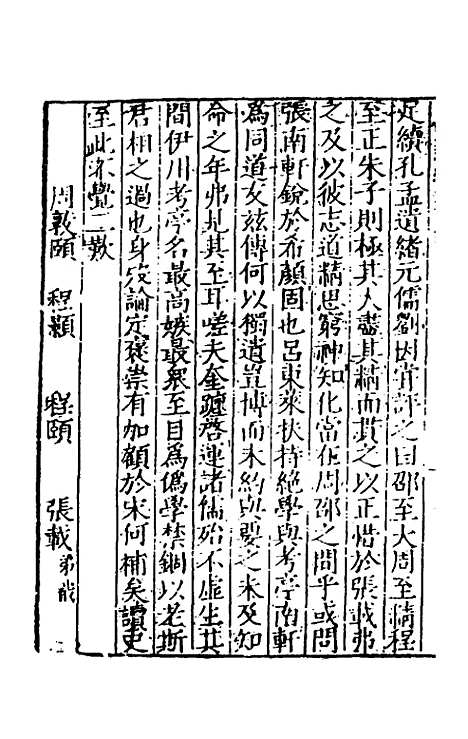 足續孔孟遺緒元儒劉因嘗評之曰邵至大周至精程
至正朱子則極其大盡其精而貫之以正惜於張載弗
之及以彼志道精思窮神知化當在周邵之間乎或問
張南軒銳於希顏固也呂東萊扶持絕學與考亭南軒
為同道友茲傳何以獨遺豈博而未約與要之未及知
命之年弗扎其至耳嗟夫奎躔啓運諸儒殆不虛生其
間伊川考亭名最高嫉最衆至目為僞學禁錮以老斯
君相之過也身歿論定褒崇有加顧於宋何補矣讀史
至此不覺三歎
周敦頤 程顥 程頤 張載弟戩